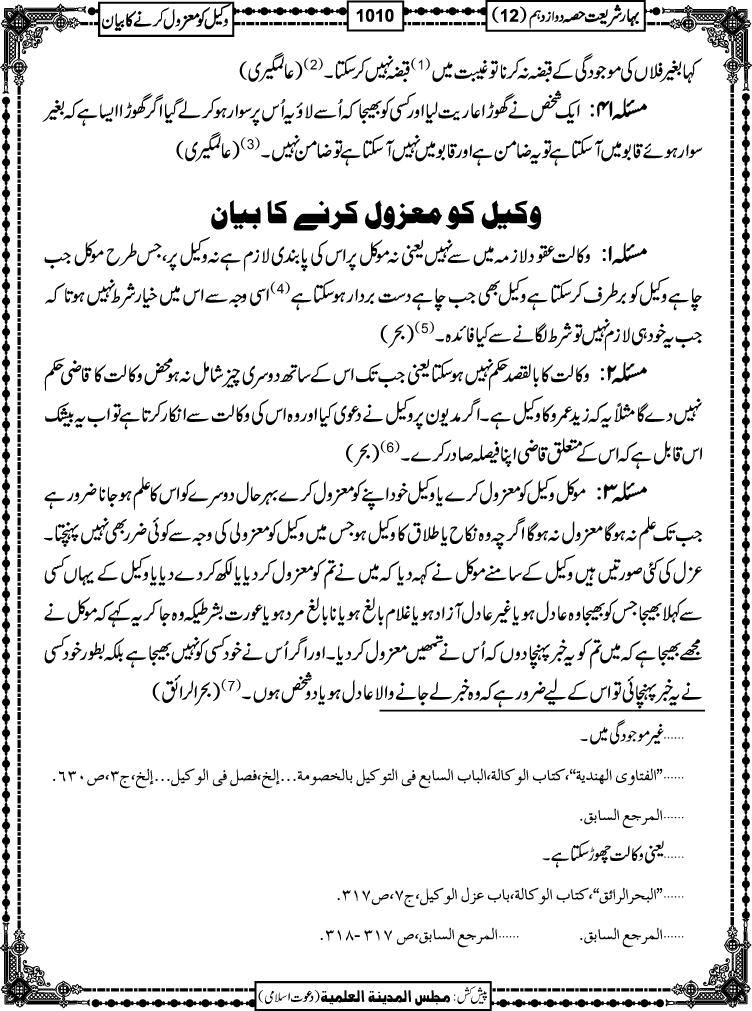 بہار شریعت حصہ دوازدہم (12)
1010
وکیل کو معزول کرنے کا بیان
کہا بغیر فلاں کی موجودگی کے قبضہ نہ کرنا تو غیبت میں (1) قبضہ نہیں کرسکتا۔ (2) (عالمگیری)
مسئلہ ۴۱: ایک شخص نے گھوڑا عاریت لیا اور کسی کو بھیجا کہ اُسے لاؤ یہ اُس پر سوار ہو کر لے گیا اگر گھوڑا ایسا ہے کہ بغیر
سوار ہوئے قابو میں آسکتا ہے تو یہ ضامن ہے اور قابو میں نہیں آسکتا ہے تو ضامن نہیں۔ (3) (عالمگیری)
وکیل کو معزول کرنے کا بیان
مسئلہ ۱: وکالت عقود لازمہ میں سے نہیں یعنی نہ موکل پر اس کی پابندی لازم ہے نہ وکیل پر، جس طرح موکل جب
چاہے وکیل کو برطرف کرسکتا ہے وکیل بھی جب چاہے دست بردار ہوسکتا ہے (4) اسی وجہ سے اس میں خیار شرط نہیں ہوتا کہ
جب یہ خود ہی لازم نہیں تو شرط لگانے سے کیا فائدہ۔ (5) (بحر)
مسئلہ ۲: وکالت کا بالقصد حکم نہیں ہوسکتا یعنی جب تک اس کے ساتھ دوسری چیز شامل نہ ہو محض وکالت کا قاضی حکم
نہیں دے گا مثلاً یہ کہ زید عمرو کا وکیل ہے۔ اگر مدیون پر وکیل نے دعوی کیا اور وہ اس کی وکالت سے انکار کرتا ہے تو اب یہ بیشک
اس قابل ہے کہ اس کے متعلق قاضی اپنا فیصلہ صادر کرے۔ (6) (بحر)
مسئلہ ۳: موکل وکیل کو معزول کرے یا وکیل خود اپنے کو معزول کرے بہر حال دوسرے کو اس کا علم ہوجانا ضرور ہے
جب تک علم نہ ہوگا معزول نہ ہوگا اگرچہ وہ نکاح یا طلاق کا وکیل ہو جس میں وکیل کو معزولی کی وجہ سے کوئی ضرر بھی نہیں پہنچتا۔
عزل کی کئی صورتیں ہیں وکیل کے سامنے موکل نے کہہ دیا کہ میں نے تم کو معزول کردیا یا لکھ کر دے دیا یا وکیل کے یہاں کسی
سے کہلا بھیجا جس کو بھیجا وہ عادل ہو یا غیر عادل آزاد ہو یا غلام بالغ ہو یا نابالغ مرد ہو یا عورت بشرطیکہ وہ جا کر یہ کہے کہ موکل نے
مجھے بھیجا ہے کہ میں تم کو یہ خبر پہنچا دوں کہ اُس نے تمھیں معزول کردیا۔ اور اگر اُس نے خود کسی کو نہیں بھیجا ہے بلکہ بطور خود کسی
نے یہ خبر پہنچائی تو اس کے لیے ضرور ہے کہ وہ خبر لے جانے والا عادل ہو یا دو شخص ہوں۔ (7) (بحرالرائق)
......غیر موجودگی میں۔
......”الفتاوی الھندیة“،کتاب الوکالة،الباب السابع فی التوکیل بالخصومة...إلخ،فصل فی الوکیل...إلخ،ج۳،ص۶۳۰.
......المرجع السابق.
......یعنی وکالت چھوڑ سکتا ہے۔
......”البحرالرائق“،کتاب الوکالة،باب عزل الوکیل،ج۷،ص۳۱۷.
......المرجع السابق. ......المرجع السابق،ص ۳۱۷-۳۱۸.
پیش کش: مجلس المدینة العلمیة (دعوت اسلامی)